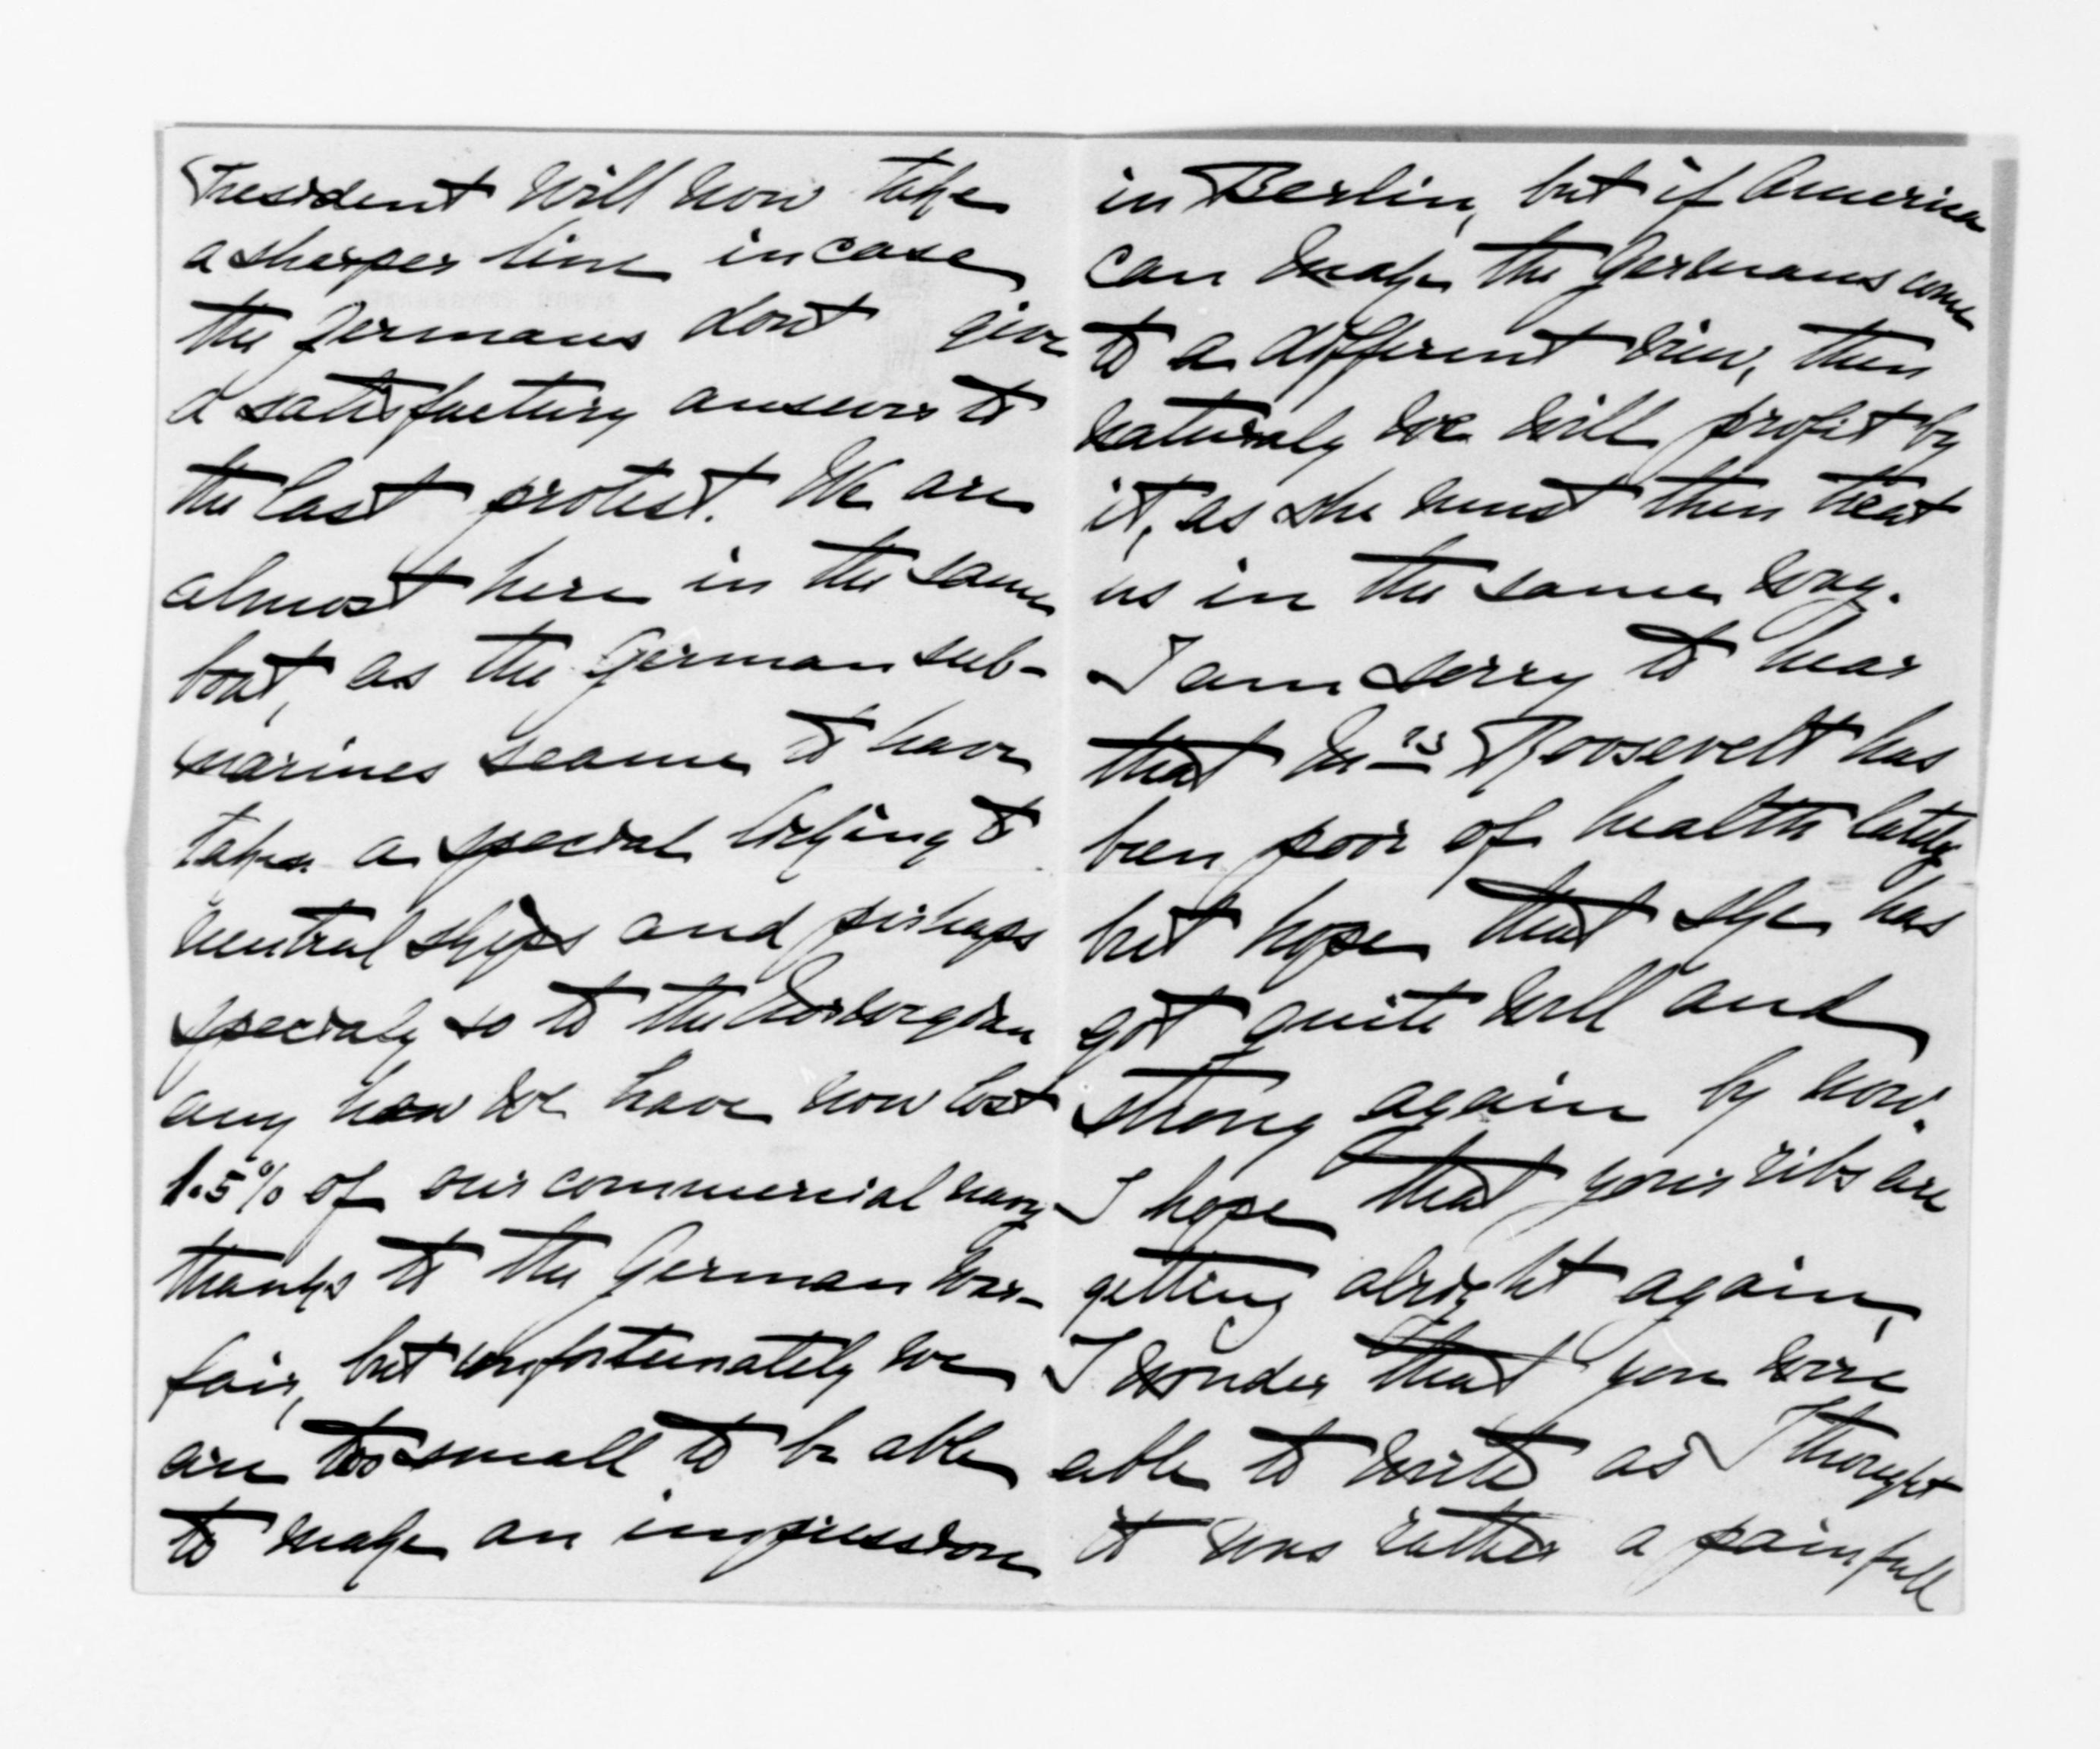 President will now take
a sharper line in case
the Germans dont give
a satisfactury answer to
the last protest. We are
almost here in the same
boat, as the German sub-
marines seame to have
taken a special liking to
neutral ships and perhaps
specialy so to the Norwegian
any how we have now lost
1.5% of our commercial navy
thanks to the German war-
fair, but unfortunately we
are too small to be able
to make an impression
in Berlin, but if America
can make the Germans come
to a different view, then
naturaly we will profit by
it, as she must then treat
us in the same way.
I am sorry to hear
that Mrs Roosevelt has
been poor of health lately,
but hope that she has
got quite well and
strong again by now.
I hope that your ribs are
getting alright again,
I wonder that you were
able to write as I thought
it was rather a painfull